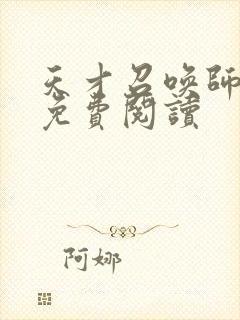 天才召唤師
免費閱讀
阿娜